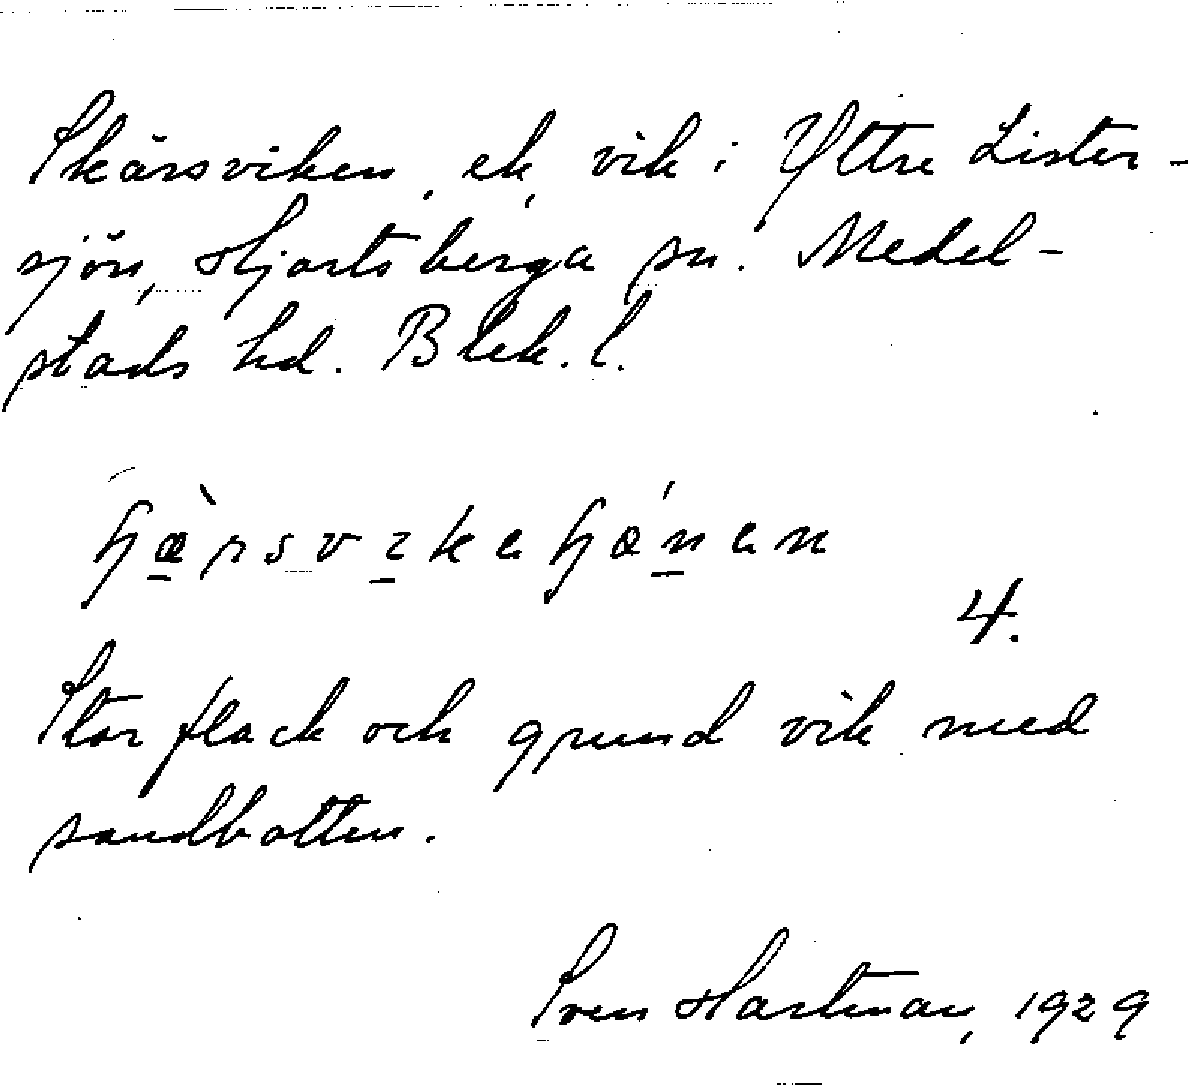 Skärsviken, ek, vik i Yttre Lister-
sjön, Hjortsberga sn. Medel-
stads hd. Blek. l.
4.
Stor flack och grund vik med
sandbotten.
Sven Hartman, 1929